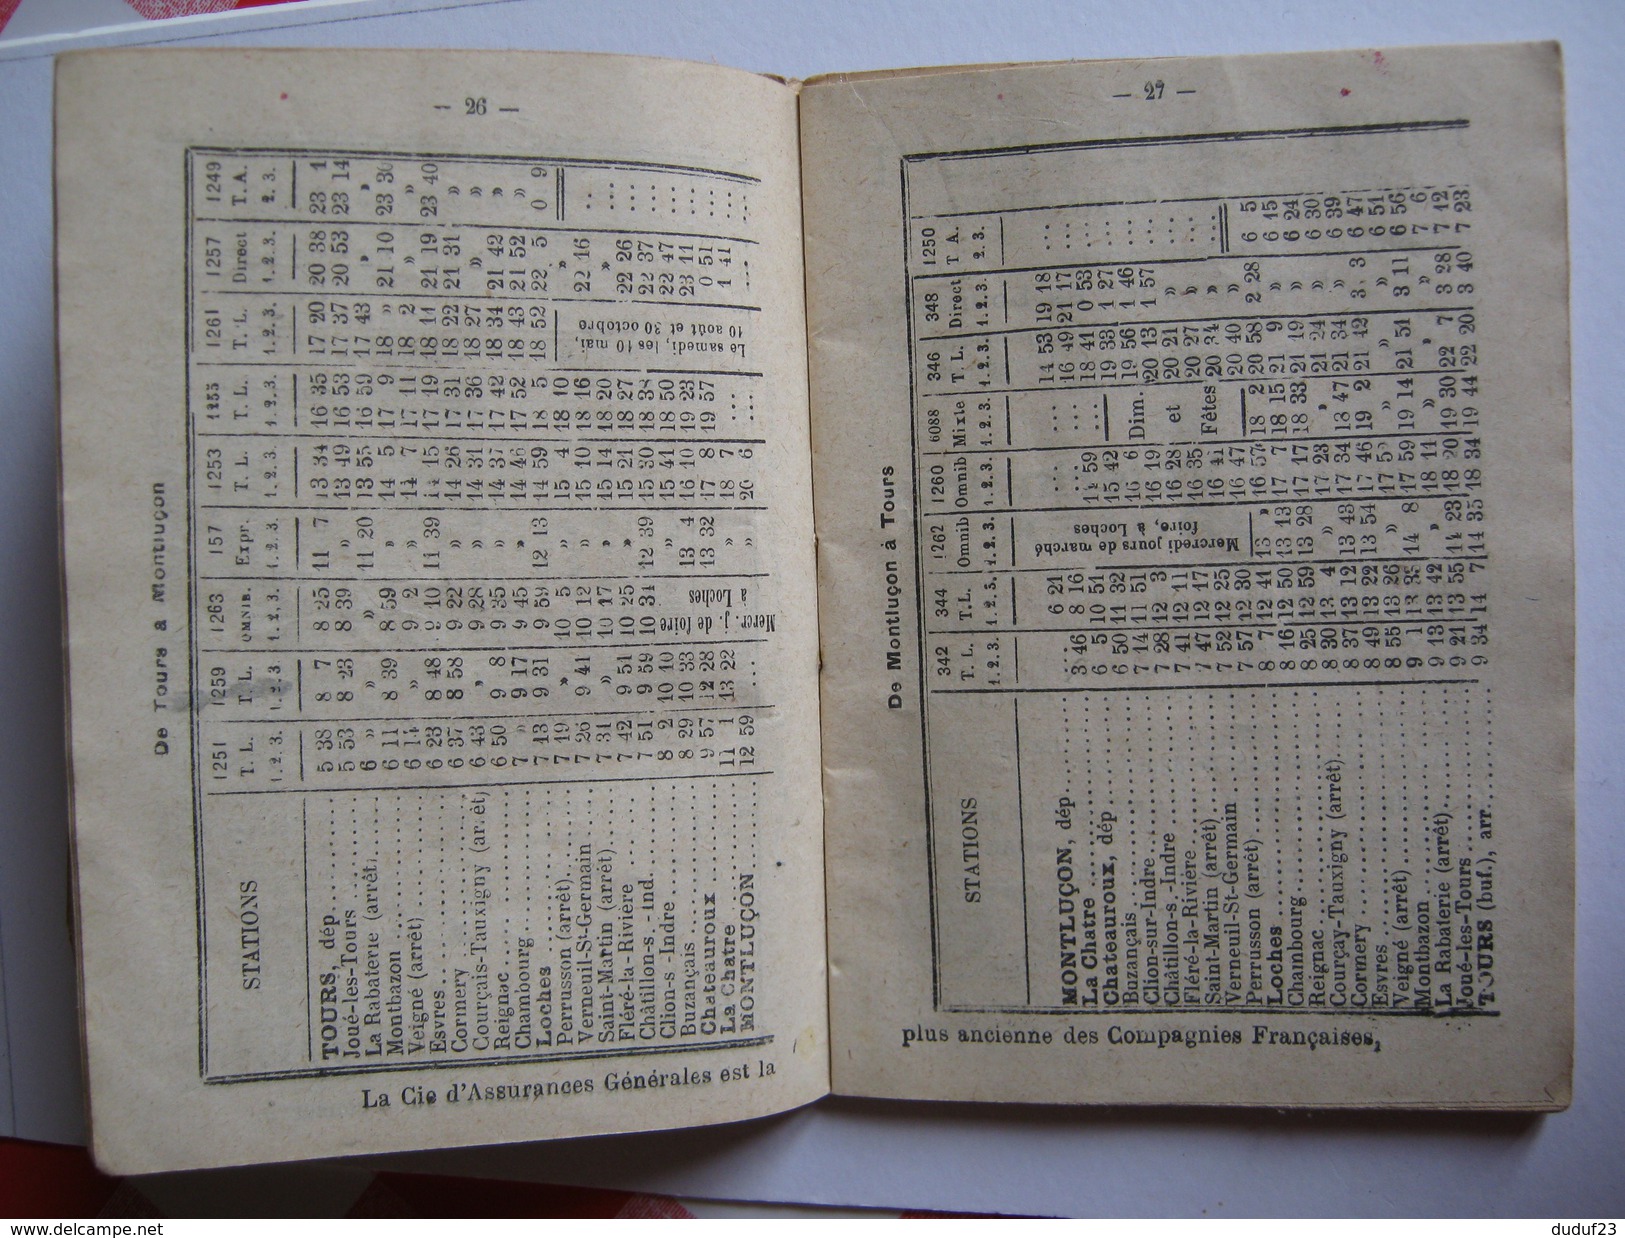 — 26 —
De Tours a Montluçon
STATIONS 1251 1259 1263 157 1253 1255 1261 1257 1249
T. L. T. L. OMNIB. Expr. T. L. T. L. T. L. Direct T. A.
1. 2. 3. 1. 2. 3 1. 2. 3. 1. 2. 3. 1. 2. 3. 1. 2. 3. 1. 2. 3. 1. 2. 3. 2. 3.
TOURS, dép 5 38 8 7 8 25 11 7 13 34 16 35 17 20 20 38 23 1
Joué-les-Tours 5 53 8 23 8 39 » 13 49 16 53 17 37 20 53 23 14
La Rabaterie (arrêt) 6 » » » 11 20 13 55 16 59 17 43 » »
Montbazon 6 11 8 39 8 59 » 14 5 17 9 18 » 21 10 23 30
Veigné (arrêt) 6 14 » 9 2 » 14 7 17 11 18 2 » »
Esvres 6 23 8 48 9 10 11 39 14 15 17 19 18 11 21 19 23 40
Cormery 6 37 8 58 9 22 » 14 26 17 31 18 22 21 31 »
Courçais-Tauxigny (arrêt) 6 43 » 9 28 » 14 31 17 36 18 27 »
Reignac 6 50 9 8 9 35 » 14 37 17 42 18 34 21 42 »
Chambourg 7 » 9 17 9 45 » 14 46 17 52 18 43 21 52 »
Loches 7 13 9 31 9 59 12 13 14 59 18 5 18 52 22 5 0 9
Perrusson (arrêt) 7 19 » 10 5 » 15 4 18 10 »
Verneuil-St-Germain 7 26 9 41 10 12 » 15 10 18 16 22 16 ..
Saint-Martin (arrêt) 7 31 » 10 17 » 15 14 18 20 » ...
Fléré-la-Rivière 7 42 9 51 10 25 » 15 21 18 27 22 26 ...
Châtillon-s-Ind. 7 51 9 59 10 34 12 39 15 30 18 38 22 37 ...
Clion-s-Indre 8 2 10 10 » 15 41 18 50 22 47 ...
Buzançais 8 29 10 33 13 4 16 10 19 23 23 11 ...
Chateauroux 9 57 12 28 13 32 17 8 19 57 0 51 ...
La Chatre 11 1 13 22 » 18 7 ... 1 41 ...
MONTLUÇON 12 59 ... » 20 6 ... ... ...
Mercr. j. de foire
à Loches
Le samedi, les 10 mai,
10 août et 30 octobre
La Cie d'Assurances Générales est la
— 27 —
De Montluçon à Tours
STATIONS 342 344 1262 1260 6088 346 348 1250
T. L. T.L. Omnib Omnib Mixte T. L. Direct T A.
1. 2. 3. 1. 2. 3. 1. 2. 3. 1. 2. 3. 1. 2. 3. 1. 2. 3. 1. 2. 3. 2. 3.
MONTLUÇON, dép ... 6 21 ... ... 14 53 19 18 ...
La Chatre 3 46 8 16 ... ... 16 49 21 17 ...
Chateauroux, dép 6 5 10 51 14 59 ... 18 41 0 53 ...
Buzançais 6 50 11 32 15 42 19 33 1 27 ...
Clion-sur-Indre 7 14 11 51 16 6 19 56 1 46 ...
Châtillon-s-Indre 7 28 12 3 16 19 20 13 1 57 ...
Fléré-la-Rivière 7 41 12 11 16 28 20 21 » ...
Saint-Martin (arrêt) 7 47 12 17 16 35 20 27 » ...
Verneuil-St-Germain 7 52 12 25 16 41 20 34 » ...
Perrusson (arrêt) 7 57 12 30 16 47 20 40 »
Loches 8 7 12 41 13 » 16 57 18 2 20 58 2 28 6 5
Chambourg 8 16 12 50 13 13 17 7 18 15 21 9 » 6 15
Reignac 8 25 12 59 13 28 17 17 18 33 21 19 » 6 24
Courçay-Tauxigny (arrêt) 8 30 13 4 » 17 23 » 21 24 » 6 30
Cormery 8 37 13 12 13 43 17 34 18 47 21 34 » 6 39
Esvres 8 49 13 22 13 54 17 46 19 2 21 42 3 3 6 47
Veigné (arrêt) 8 55 13 26 » 17 5 » » » 6 51
Montbazon 9 1 13 14 8 17 59 19 14 21 51 3 11 6 56
La Rabaterie (arrêt) 9 13 13 42 » 18 11 » » » 7 6
Joué-les-Tours 9 21 13 55 14 23 18 20 19 30 22 7 3 28 7 12
TOURS (buf.), arr. 9 34 14 7 14 35 18 34 19 44 22 20 3 40 7 23
Mercredi jours de marché
foire, à Loches
Dim.
et
Fêtes
plus ancienne des Compagnies Françaises,
www.delcampe.net
duduf23